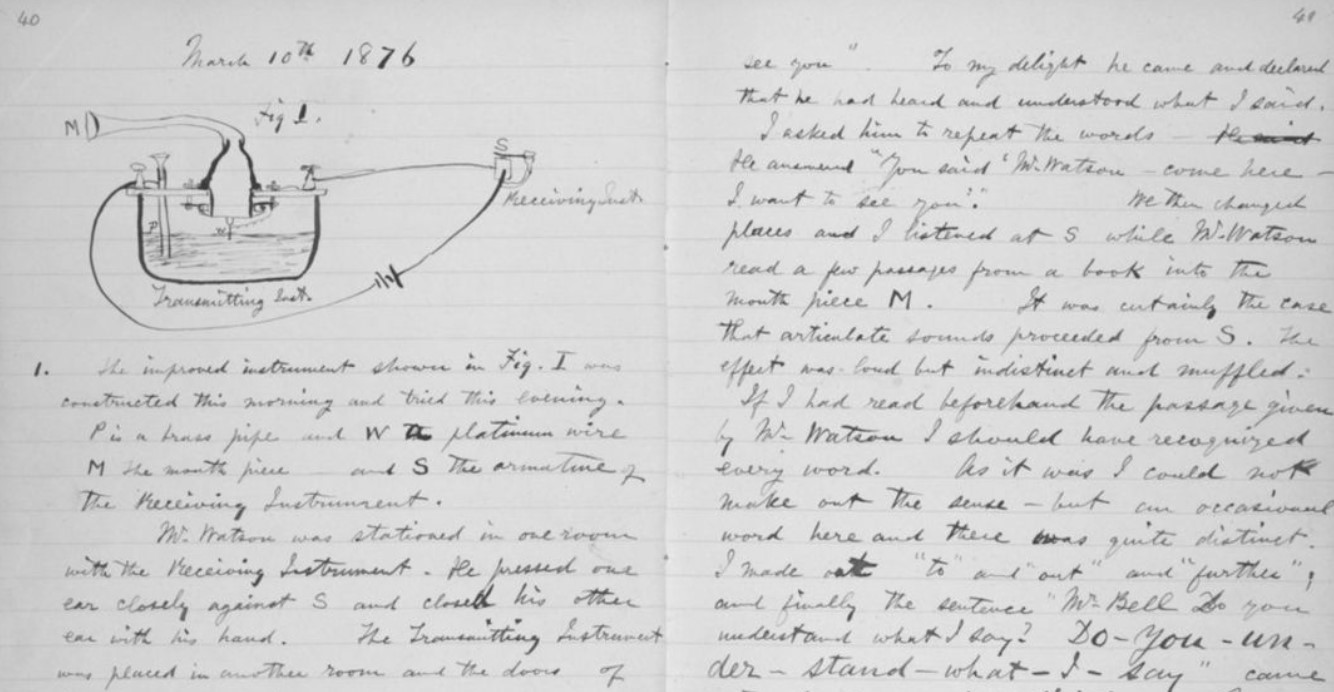 40
March 10th 1876
Fig I.
M
S
Receiving Inst.
P
W
Transmitting Inst.
1. The improved instrument shown in Fig. I was
constructed this morning and tried this evening.
P is a brass pipe and W the platinum wire
M the mouth piece and S the armature of
the Receiving Instrument.
Mr. Watson was stationed in one room
with the Receiving Instrument. He pressed one
ear closely against S and closed his other
ear with his hand. The Transmitting Instrument
was placed in another room and the doors of
41
see you". To my delight he came and declared
that he had heard and understood what I said.
I asked him to repeat the words — He said
He answered "You said 'Mr. Watson — come here —
I want to see you'." We then changed
places and I listened at S while Mr. Watson
read a few passages from a book into the
mouth piece M. It was certainly the case
that articulate sounds proceeded from S. The
effect was loud but indistinct and muffled.
If I had read beforehand the passage given
by Mr. Watson I should have recognized
every word. As it was I could not
make out the sense — but an occasional
word here and there was quite distinct.
I made out "to" and "out" and "further";
and finally the sentence "Mr. Bell Do you
understand what I say? Do-you-un-
der-stand-what-I-say" came